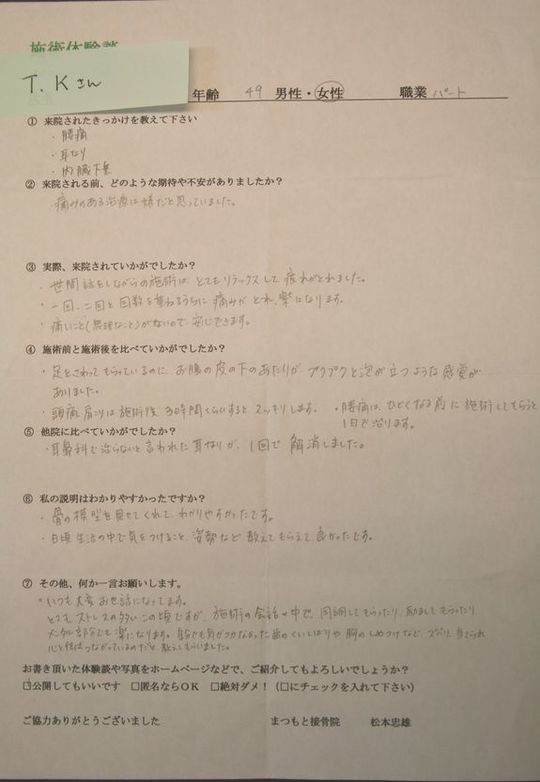 施術体験談
T. Kさん
年齢 49 男性・女性 職業 パート
① 来院されたきっかけを教えて下さい
・腰痛
・耳なり
・内臓下垂
② 来院される前、どのような期待や不安がありましたか？
・痛みのある治療は嫌だと思っていました。
③ 実際、来院されていかがでしたか？
・世間話をしながらの施術は とてもリラックスして 疲れがとれました。
・一回、二回と回数を重ねるうちに 痛みが とれ、楽になります。
・痛いこと(無理なこと)がないので、安心できます。
④ 施術前と施術後を比べていかがでしたか？
・足をさわってもらっているのに、お腹の皮の下のあたりが、プクプクと泡が立つような感覚が
ありました。
・頭痛、肩こりは施術後 30時間くらいすると、スッキリします。 ・腰痛は、ひどくなる前に施術してもらうと
1日で治ります。
⑤ 他院に比べていかがでしたか？
・耳鼻科で治らないと言われた耳なりが、1回で 解消しました。
⑥ 私の説明はわかりやすかったですか？
・骨の模型を見せてくれて、わかりやすかったです。
・日頃 生活の中で気をつけること、姿勢など 教えてもらえて 良かったです。
⑦ その他、何か一言お願いします。
・いつも大変 お世話になってます。
とてもストレスの多い この頃ですが、施術の会話の中で、同調してもらったり、励ましてもらったり
も楽になります。自分でも気がつかなかった歯のくいしばりや 胸のしめつけなど、ズバリ、当てられ
心と体はつながっているのだと 教えてもらいました。
お書き頂いた体験談や写真をホームページなどで、ご紹介してもよろしいでしょうか？
☑公開してもいいです □匿名ならＯＫ □絶対ダメ！（□にチェックを入れて下さい）
ご協力ありがとうございました まつもと接骨院 松本忠雄